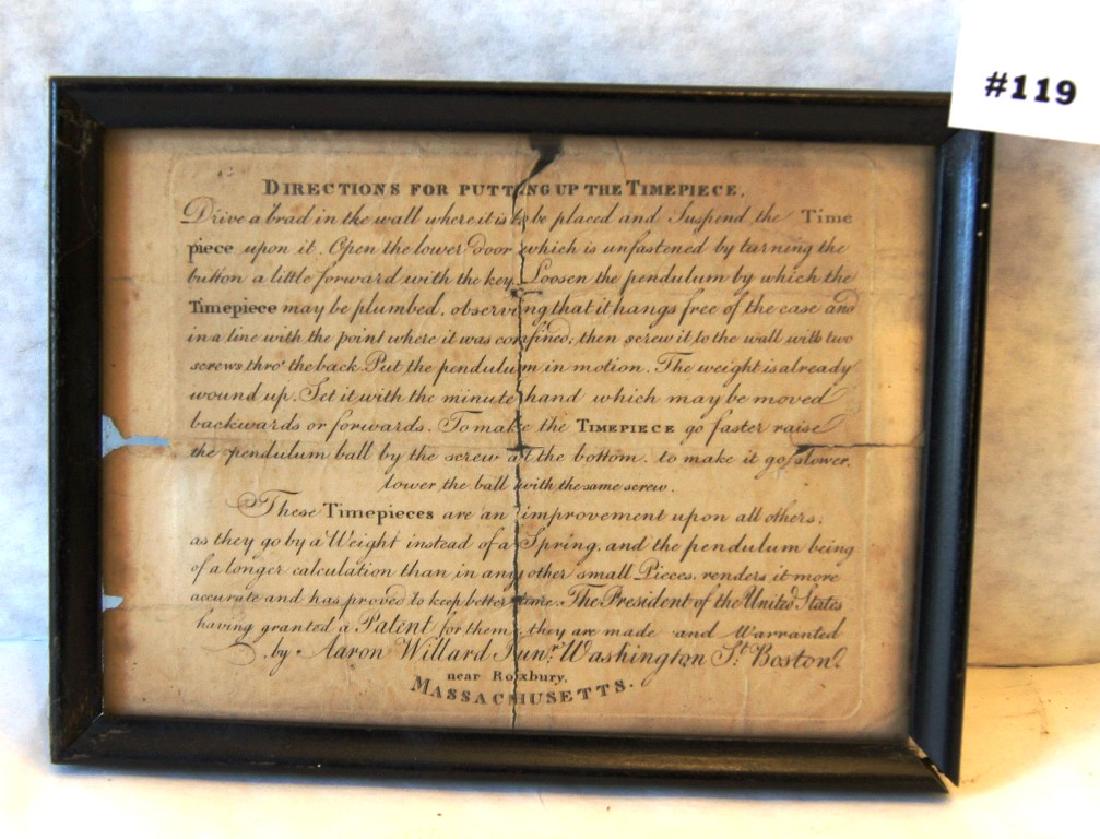 #119
DIRECTIONS FOR PUTTING UP THE TIMEPIECE.
Drive a brad in the wall where it is to be placed and Suspend the Time
piece upon it. Open the lower door which is unfastened by turning the
button a little forward with the key. Loosen the pendulum by which the
Timepiece may be plumbed, observing that it hangs free of the case and
in a line with the point where it was confined; then screw it to the wall with two
screws thro' the back. Put the pendulum in motion. The weight is already
wound up. Set it with the minute hand which may be moved
backwards or forwards. To make the TIMEPIECE go faster raise
the pendulum ball by the screw at the bottom. to make it go slower,
lower the ball with the same screw.
These Timepieces are an improvement upon all others;
as they go by a Weight instead of a Spring, and the pendulum being
of a longer calculation than in any other small Pieces, renders it more
accurate and has proved to keep better time. The President of the United States
having granted a Patent for them, they are made and Warranted
by Aaron Willard Junr. Washington St. Boston,
near Roxbury,
MASSACHUSETTS.